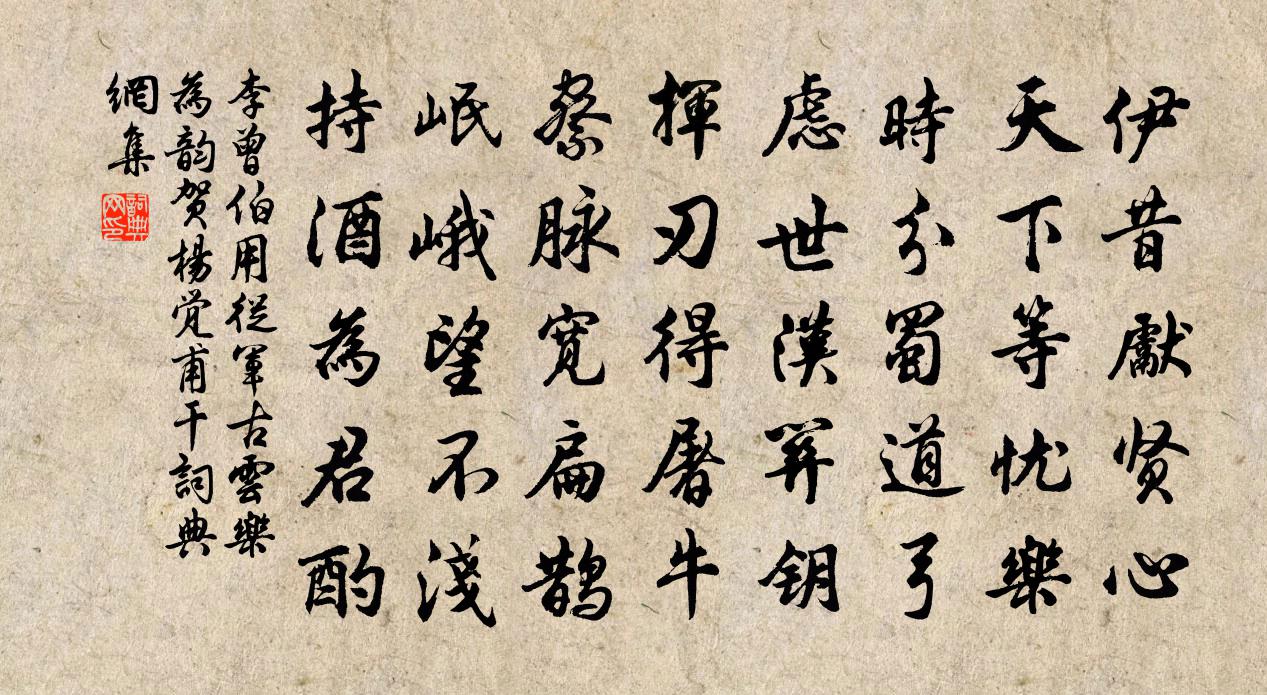 伊昔獻贤心
天下等忧樂
時分蜀道弓
慮世漢笄鑰
揮刃得屠牛
察脉宽扁鹊
岷峨望不淺
持酒為君酌
李曾伯用從軍古雲樂
為韵贺楊觉甫干詞典
網集
詞典网印